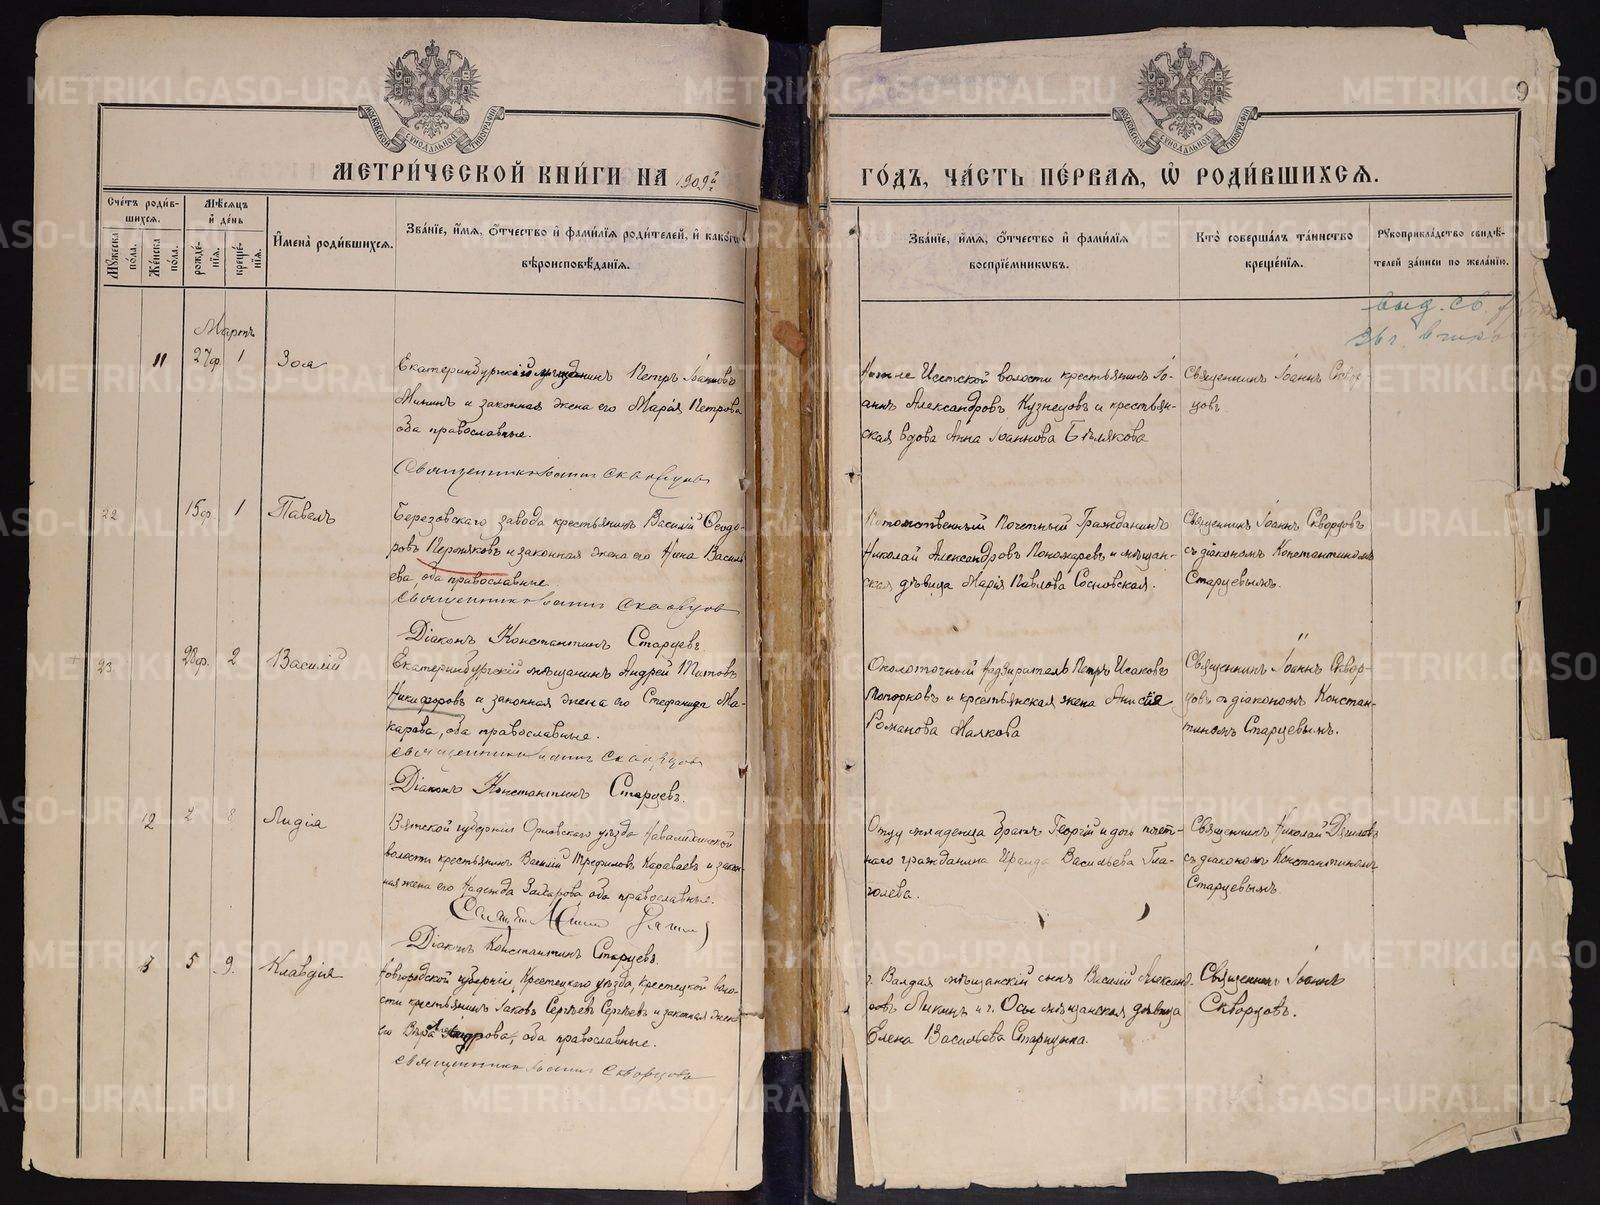 МЕТРИ́ЧЕСКОЙ КНИ́ГИ НА 1909й
ГО́ДЪ, ЧА́СТЬ ПЕ́РВАЯ, Ѡ҆ РОДИ́ВШИХСЯ.
9
Сче́тъ роди́в-
шихся.
Мꙋ́жеска по́ла.
Же́нска по́ла.
Мѣ́сяцъ
и҆ де́нь
рожде́-
нїя.
креще́-
нїя.
И҆мена̀ роди́вшихся.
Зва́нїе, и҆́мя, ѻ҆́тчество и҆ фами́лїя роди́телей, и҆ како́гѡ
вѣроисповѣ́данїя.
Зва́нїе, и҆́мя, ѻ҆́тчество и҆ фами́лїя
воспрїе́мниковъ.
Кто̀ соверша́лъ та́инство
креще́нїя.
Рꙋкоприкла́дство свидѣ́-
телей за́писи по жела́нїю.
выд. св.
Мартъ
11 27ф. 1 Зоя
Екатеринбургскій мѣщанинъ Петръ Іоанновъ
Мининъ и законная жена его Марія Петрова
оба православные.
Священникъ Іоаннъ Скворцовъ
Исетской волости крестьянинъ Іо-
аннъ Александровъ Кузнецовъ и крестьян-
ская вдова Анна Іоаннова Бѣлякова
Священникъ Іоаннъ Сквор-
цовъ.
22 15ф. 1 Павелъ
Березовскаго завода крестьянинъ Василій Ѳеодо-
ровъ Перфняковъ и законная жена его Нина Василь
ева, оба православные.
Священникъ Іоаннъ Скворцовъ
Діаконъ Константинъ Старцевъ
Потомственный Почетный Гражданинъ
Николай Александровъ Пономаревъ и мѣщан-
ская дѣвица Марія Павлова Сосновская.
Священникъ Іоаннъ Скворцовъ
съ діакономъ Константиномъ
Старцевымъ.
23 28ф. 2 Василій
Екатеринбургскій мѣщанинъ Андрей Титовъ
Никифоровъ и законная жена его Стефанида Ма-
карова, оба православные.
Священникъ Іоаннъ Скворцовъ
Діаконъ Константинъ Старцевъ.
Околоточный Надзиратель Петръ Исаковъ
Топорковъ и крестьянская жена Анисія
Романова Малкова
Священникъ Іоаннъ Сквор-
цовъ съ діакономъ Констан-
тиномъ Старцевымъ.
12 2 8 Лидія
Вятской губерніи Орловскаго уѣзда
волости крестьянинъ Василій Трефиловъ Караваевъ и закон-
ная жена его Надежда Захарова оба православные.
Діаконъ Константинъ Старцевъ.
Отцу младенца братъ Георгій и дочь почет-
наго гражданина Ираида Васильева Гла-
голева.
Священникъ Николай
съ діакономъ Константиномъ
Старцевымъ
5 9. Клавдія
Новгородской губерніи, Крестецкаго уѣзда, Крестецкой воло-
сти крестьянинъ Іаковъ Сергѣевъ Сергѣевъ и законная жена
его Вѣра оба православные.
Священникъ Іоаннъ Скворцовъ
г. Валдая мѣщанскій сынъ Василій Александ-
ровъ Ликинъ и г. Осы мѣщанская дѣвица
Елена Васильева Старицына.
Священникъ Іоаннъ
Скворцовъ.
METRIKI.GASO-URAL.RU